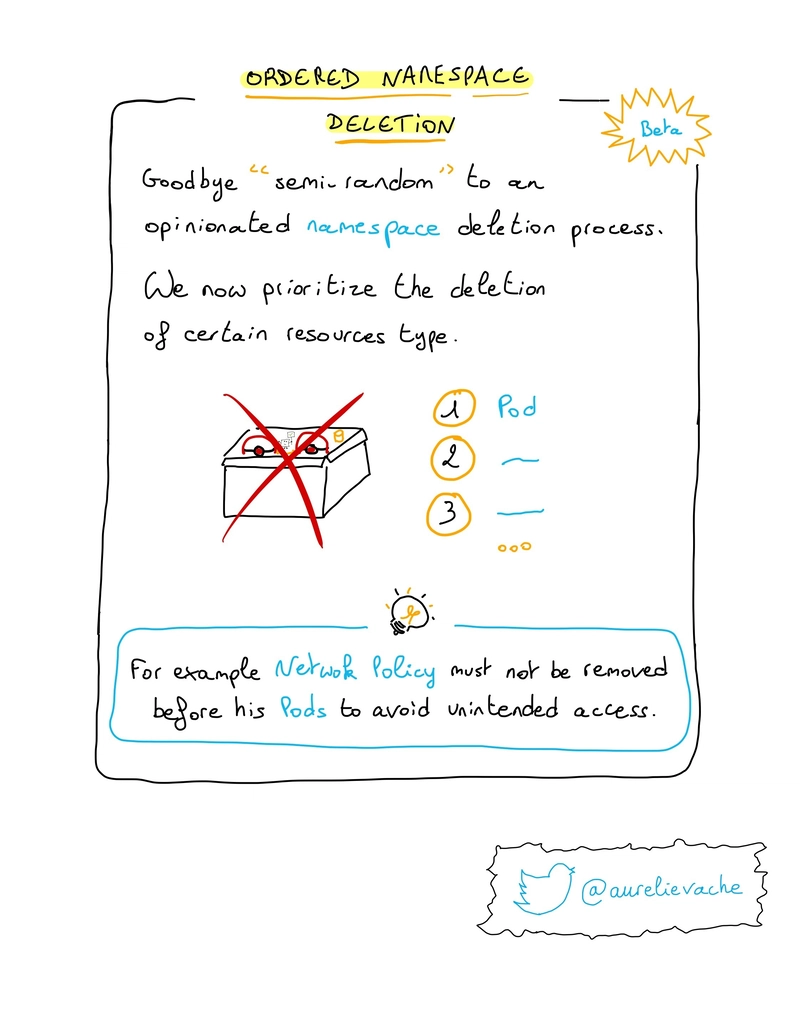 ORDERED NAMESPACE
DELETION
Beta
Goodbye "semi-random" to an
opinionated namespace deletion process.
We now prioritize the deletion
of certain resources type.
1 Pod
2
3
For example Netwok Policy must not be removed
before his Pods to avoid unintended access.
@aurelievache